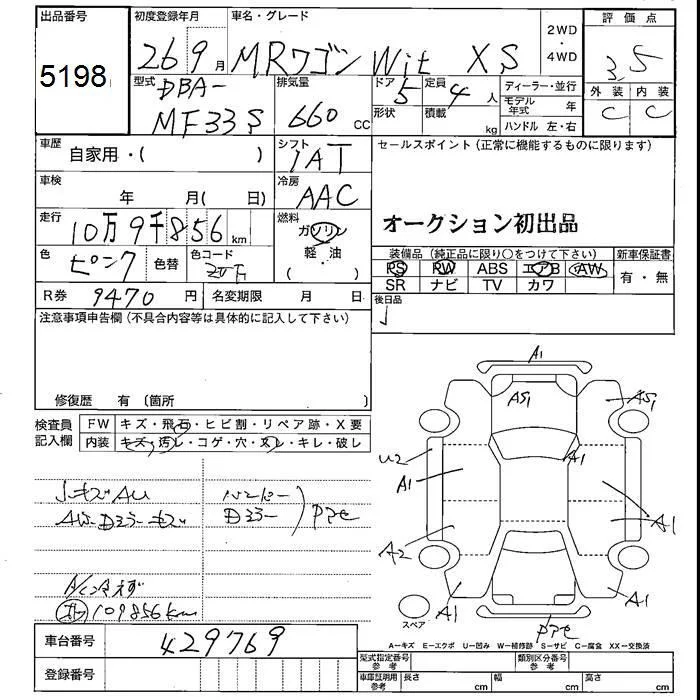 出品番号 初度登録年月 車名・グレード 2WD ・ 4WD 評価点
5198 26 9月 MRワゴン Wit XS 3.5
型式 DBA- MF33S 排気量 660 cc ドア 5 形状 定員 4 人 積載 kg ディーラー・並行 モデル年式 年 ハンドル 左・右 外装 C 内装 C
車歴 自家用・( ) シフト IAT セールスポイント (正常に機能するものに限ります)
車検 年 月( 日) 冷房 AAC
走行 10万9千856km 燃料 ガソリン 軽・油 ( ) オークション初出品
色 ピンク 色替 色コード 装備品 (純正品に限り○をつけて下さい) 新車保証書
PS PW ABS エアB AW 有・無
SR ナビ TV カワ
R券 9470円 名変期限 月 日 後日品
注意事項申告欄 (不具合内容等は具体的に記入して下さい)
修復歴 有 〔箇所 〕
検査員記入欄 FW キズ・飛石・ヒビ割・リペア跡・X要
内装 キズ・汚レ・コゲ・穴・スレ・キレ・破レ
A1
AS1 AS1
U2 A1 A1
A2 A1
A1 A1
スペア
A/C冷えず
109856km
A=キズ E=エクボ U=凹み W=補修跡 S=サビ C=腐食 XX=交換済
車台番号 429769 型式指定番号 参考 類別区分番号 参考
登録番号 車庫証明用 参考 長さ cm 幅 cm 高さ cm